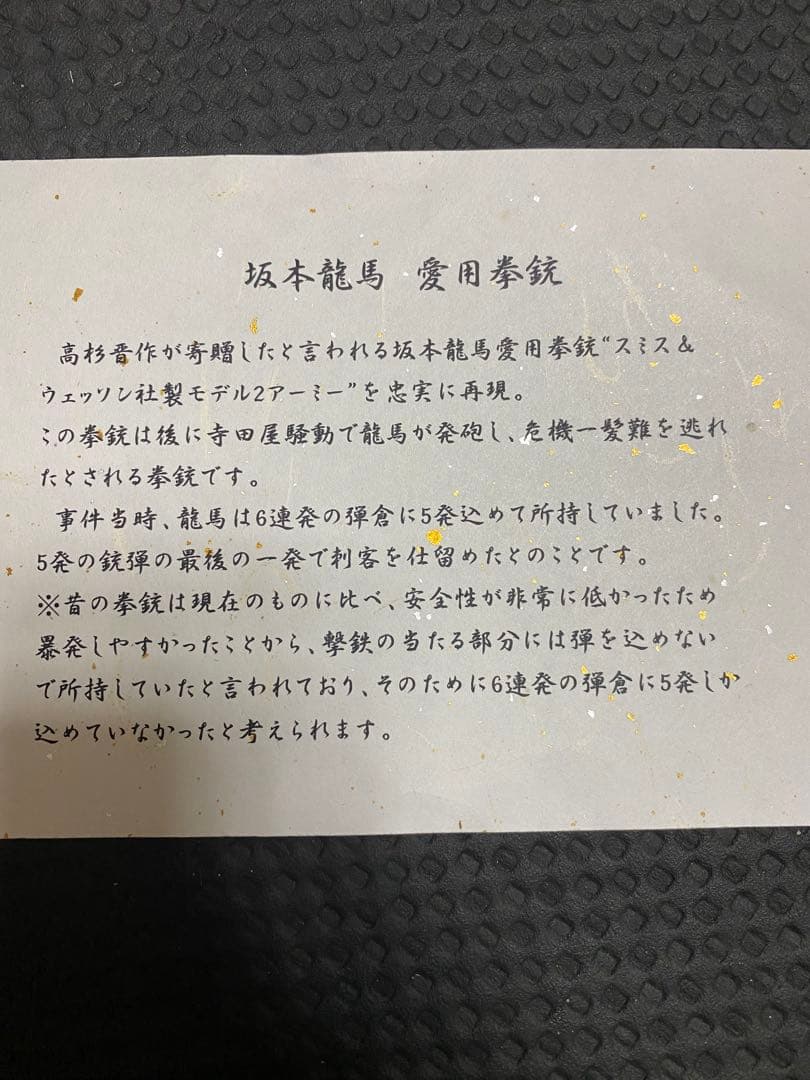 坂本龍馬 愛用拳銃
高杉晋作が寄贈したと言われる坂本龍馬愛用拳銃“スミス＆
ウェッソン社製モデル2アーミー”を忠実に再現。
この拳銃は後に寺田屋騒動で龍馬が発砲し、危機一髪難を逃れ
たとされる拳銃です。
事件当時、龍馬は6連発の弾倉に5発込めて所持していました。
5発の銃弾の最後の一発で刺客を仕留めたとのことです。
※昔の拳銃は現在のものに比べ、安全性が非常に低かったため
暴発しやすかったことから、撃鉄の当たる部分には弾を込めない
で所持していたと言われており、そのために6連発の弾倉に5発しか
込めていなかったと考えられます。